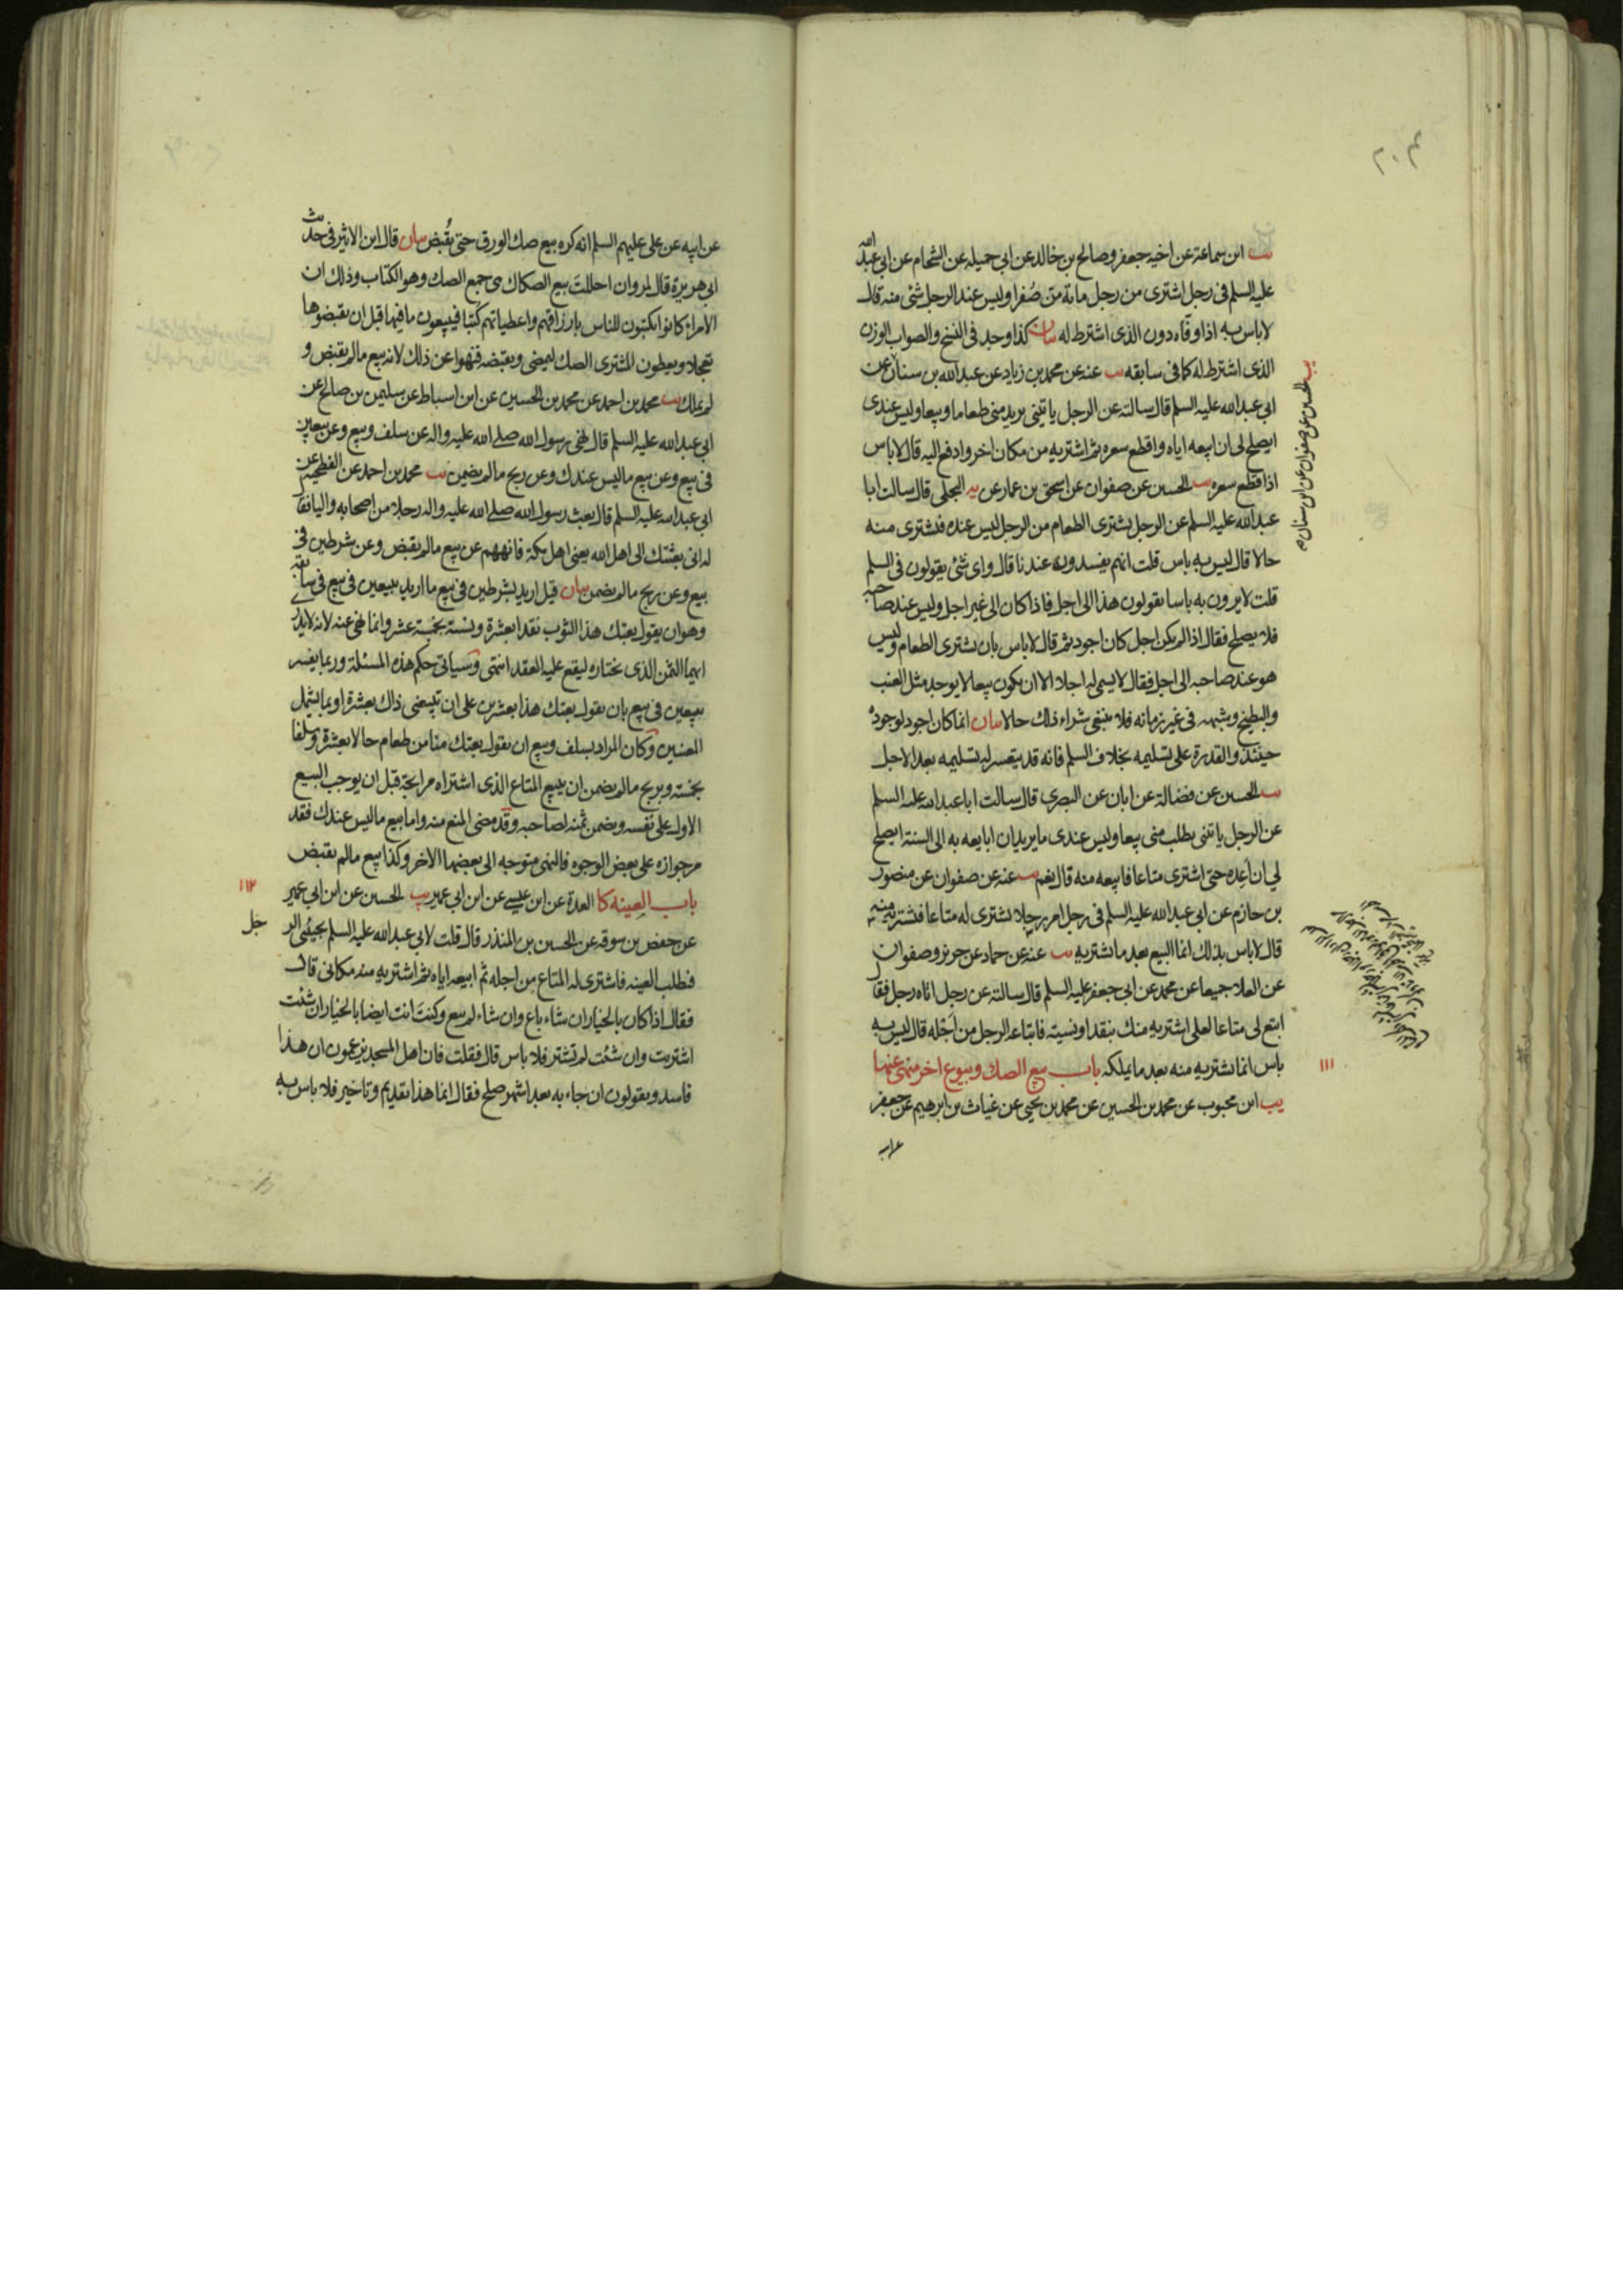 ٢٠٣
يب ابن سماعة عن اخيه جعفر وصالح بن خالد عن ابي جميله عن الشحام عن ابي عبد الله
عليه السلم في رجل اشترى من رجل مائة من صُفرا وليس عند الرجل شئ منه قال
لا باس به اذا وفاه دون الذى اشترط له بيان كذا وجد في النسخ والصواب الوزن
الذى اشترط له كما في سابقه يب عنه عن محمد بن زياد عن عبد الله بن سنان عن
ابي عبد الله عليه السلم قال سالته عن الرجل ياتيني يريد منى طعاما وبيعا وليس عندى
ايصلح لى ان ابيعه اياه واقطع سعره ثم اشتريه من مكان اخر وادفع اليه قال لا باس
اذا قطع سعره يب الحسين عن صفوان عن اسحق بن عمار عن يه البجلى قال سالت ابا
عبد الله عليه السلم عن الرجل يشترى الطعام من الرجل ليس عنده فيشترى منه
حالا قال ليس به باس قلت انهم يفسدونه عندنا قال واى شئ يقولون في السلم
قلت لا يرون به باسا يقولون هذا الى اجل فاذا كان الى غير اجل وليس عند صاحبه
فلا يصلح فقال اذا لم يكن اجل كان اجود ثم قال لا باس بان يشترى الطعام وليس
هو عند صاحبه الى اجل فقال لا يسمى له اجلا الا ان يكون بيعا لا يوجد مثل العنب
والبطيخ وشبهه في غير زمانه فلا ينبغى شراء ذلك حالا بيان انما كان اجود لوجوده
حينئذ والقدرة على تسليمه بخلاف السلم فانه قد يتعسر له تسليمه بعد الاجل
يب الحسين عن فضالة عن ابان عن البصرى قال سالت ابا عبد الله عليه السلم
عن الرجل ياتنى يطلب منى بيعا وليس عندى ما يريد ان ابايعه به الى السنة ايصلح
لي ان اَعِده حتى اشترى متاعا فابيعه منه قال نعم يب عنه عن صفوان عن منصور
بن حازم عن ابي عبد الله عليه السلم في رجل امر رجلا يشترى له متاعا فيشتريه منه
قال لا باس بذلك انما البيع بعد ما يشتريه يب عنه عن حماد عن حريز وصفوان
عن العلا جميعا عن محمد عن ابي جعفر عليه السلم قال سالته عن رجل اتاه رجل فقال
ابتع لى متاعا لعلى اشتريه منك بنقد او نسيته فابتاعه الرجل من اجله قال ليس به
باس انما يشتريه منه بعد ما يملكه باب بيع الصك وبيوع اخر منهى عنها
يب ابن محبوب عن محمد بن الحسين عن محمد بن يحيى عن غياث بن ابرهيم عن جعفر
يب الحسين عن صفوان عن ابن سنان
١١١
عن ابيه عن على عليهم السلم انه كره بيع صك الورق حتى يُقبض بيان قال ابن الاثير في حديث
ابى هريرة قال لمروان احللتَ بيع الصكاك هى جمع الصك وهو الكتاب وذلك ان
الامراء كانوا يكتبون للناس بارزاقهم واعطياتهم كتبا فيبيعون ما فيها قبل ان يقبضوها
تعجلا ويعطون المشترى الصك ليمضى ويقبضه فنهوا عن ذلك لانه بيع ما لم يقبض و
لم يملك يب محمد بن احمد عن محمد بن الحسين عن ابن اسباط عن سليمن بن صالح عن
ابي عبد الله عليه السلم قال نهى رسول الله صلى الله عليه واله عن سلف وبيع وعن بيعين
في بيع وعن بيع ما ليس عندك وعن ربح ما لم يضمن يب محمد بن احمد عن الفطحية عن
ابي عبد الله عليه السلم قال بعث رسول الله صلى الله عليه واله رجلا من اصحابه واليا فقال
له انى بعثتك الى اهل الله يعنى اهل مكة فانههم عن بيع ما لم يقبض وعن شرطين في
بيع وعن ربح ما لم يضمن بيان قيل اريد بشرطين في بيع ما اريد ببيعين في بيع في سابقه
وهو ان يقول بعتك هذا الثوب نقدا بعشرة ونسية بخمسة عشر وانما نهى عنه لانه لا يدرى
ايهما الثمن الذى يختاره ليقع عليه العقد انتهى وسياتى حكم هذه المسئلة وربما يفسر
ببيعين في بيع بان يقول بعتك هذا بعشرين على ان تبيعنى ذاك بعشرة او بما يشمل
المعنيين وكان المراد بسلف وبيع ان يقول بعتك منا من طعام حالا بعشرة وسلفا
بخمسة وبربح ما لم يضمن ان يبيع المتاع الذى اشتراه مرابحة قبل ان يوجب البيع
الاول على نفسه ويضمن ثمنه لصاحبه وقد مضى المنع منه واما بيع ما ليس عندك فقد
مر جوازه على بعض الوجوه فالنهى متوجه الى بعضها الاخر وكذا بيع ما لم يقبض
باب العينه كا العدة عن ابن عيسى عن ابن ابي عمير يب الحسين عن ابن ابي عمير
عن حفص بن سوقه عن الحسين بن المنذر قال قلت لابي عبد الله عليه السلم يجيئنى الرجل
فيطلب العينه فاشترى له المتاع من اجله ثم ابيعه اياه ثم اشتريه منه مكانى قال
فقال اذا كان بالخيار ان شاء باع وان شاء لم يبع وكنتَ انت ايضا بالخيار ان شئت
اشتريت وان شئت لم تشتر فلا باس قال فقلت فان اهل المسجد يزعمون ان هذا
فاسد ويقولون ان جاء به بعد اشهر صلح فقال انما هذا تقديم وتاخير فلا باس به
١١٢